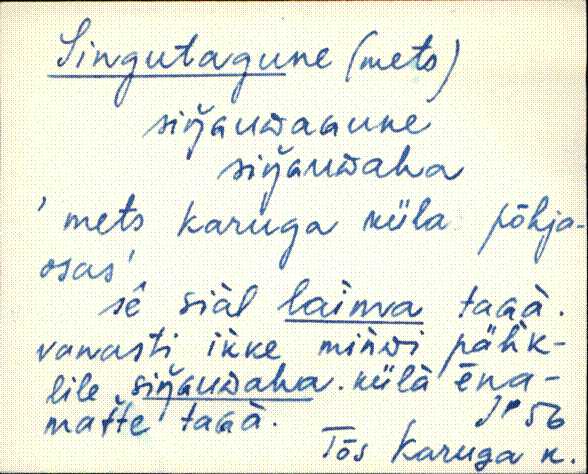 Singutagune (mets)
siŋ̆ɢuᴅaɢune
siŋ̆ɢuᴅaha
' mets Karuga küla põhja-
osas'
sê siàl laìnva taɢà.
vanasti ikke mińᴅi pähk-
lile siŋ̆ɢuᴅaha. külà ēna-
matte taɢà.
JP 56
Tõs Karuga k.